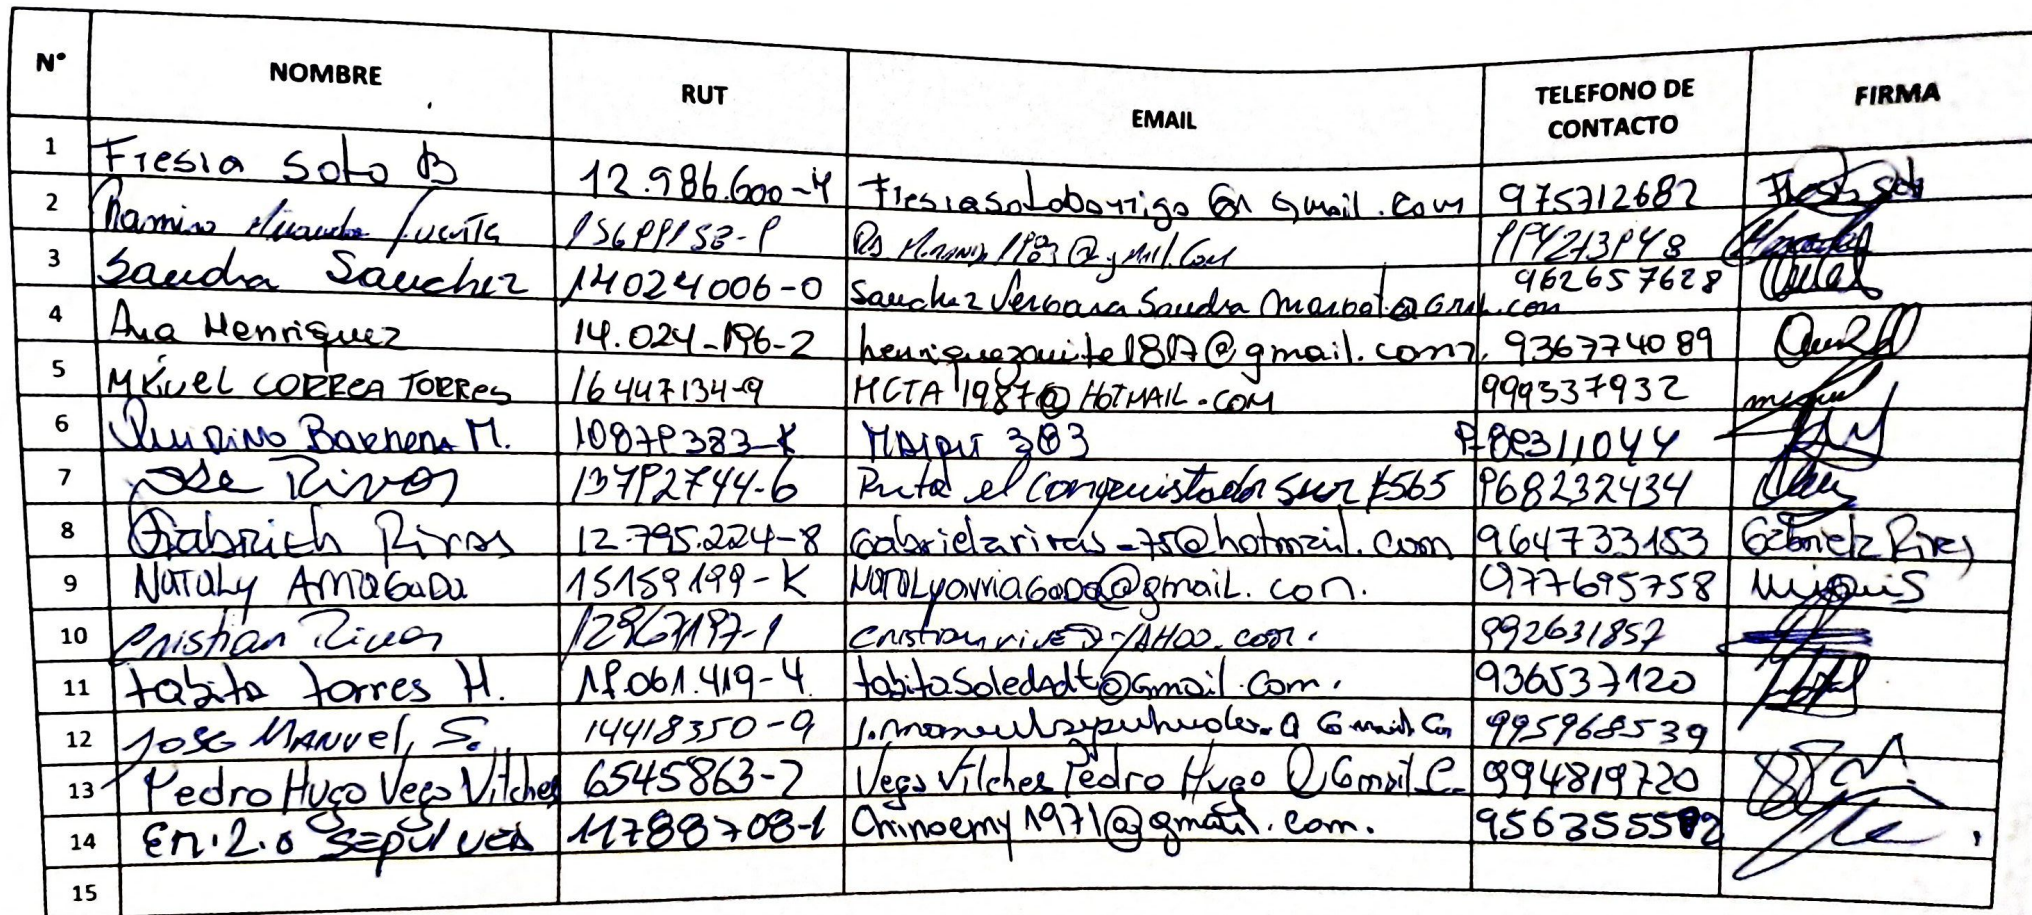 N° NOMBRE RUT EMAIL TELEFONO DE CONTACTO FIRMA
1 Fresia Soto B 12.986.600-4 Fresiasotobarriga @ Gmail.com 975712682 Fresia Soto
2 Ramiro 15699153-9 994273948
3 Sandra Sanchez 14024006-0 Sanchez Vergara Sandra Margot@Gmail.com 962657628
4 Ana Henriquez 14.024-196-2 936774089
5 MIGUEL CORREA TORRES 16447134-9 MCTA1987@HOTMAIL.COM 999337932
6 Quirino Barnena M. 10879383-K MAIPU 383 989311044
7 Jose Rivas 13792744-6 Ruta el Conquistador Sur 968232434
8 Gabriela Rivas 12.795.224-8 Gabrielarivas-75@hotmail.com 964733153 Gabriela Rivas
9 NATALY ArriaGaDa 15159199-K NATALyarriaGaDa@gmail.con. 977695758
10 Cristian Rivas 12967197-1 992631857
11 tabita torres H. 19.061.419-4. tabitaSoledadt@Gmail.com. 936537120
12 JOSE MANUEL, S. 14418350-9 995968539
13 Pedro Hugo Vega Vilches 6545863-2 Vega Vilches Pedro Hugo @ Gmail.C. 994819720
14 Em.2.o Sepulveda 11788708-1 Chinoemy1971@gmail.com.
15